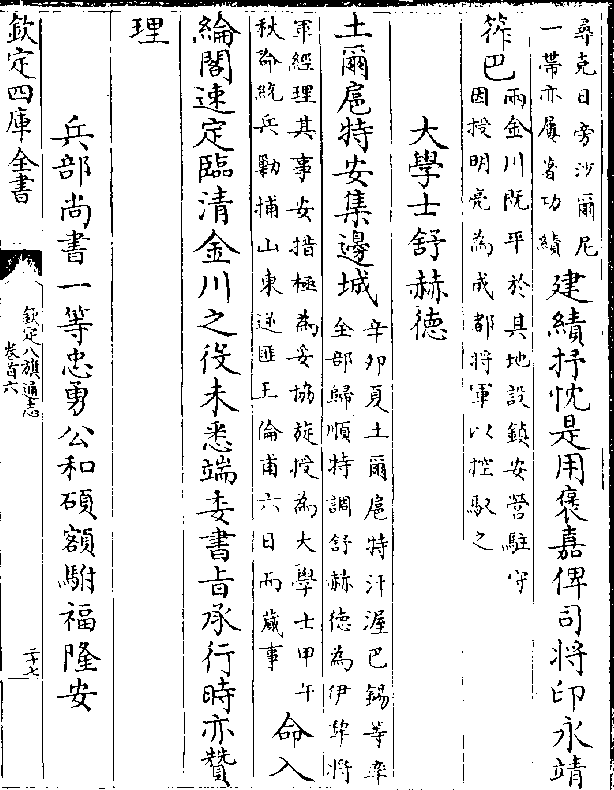 尋克日旁沙爾尼
一帶亦屢著功績
建績抒忱是用褒嘉俾司將印永靖
笮巴
兩金川既平於其地設鎮安營駐守
因授明亮為成都將軍以控馭之
大學士舒赫德
土爾扈特安集邊城
辛卯夏土爾扈特汗渥巴錫等率
全部歸順特調舒赫德為伊犂將
軍經理其事安措極為妥協旋授為大學士甲午
秋命統兵勦捕山東逆匪王倫甫六日而蕆事
命入
綸閣速定臨清金川之役未悉端委書旨承行時亦贊
理
兵部尚書一等忠勇公和碩額駙福隆安
欽定四庫全書
欽定八旗通志
卷首六
二十七